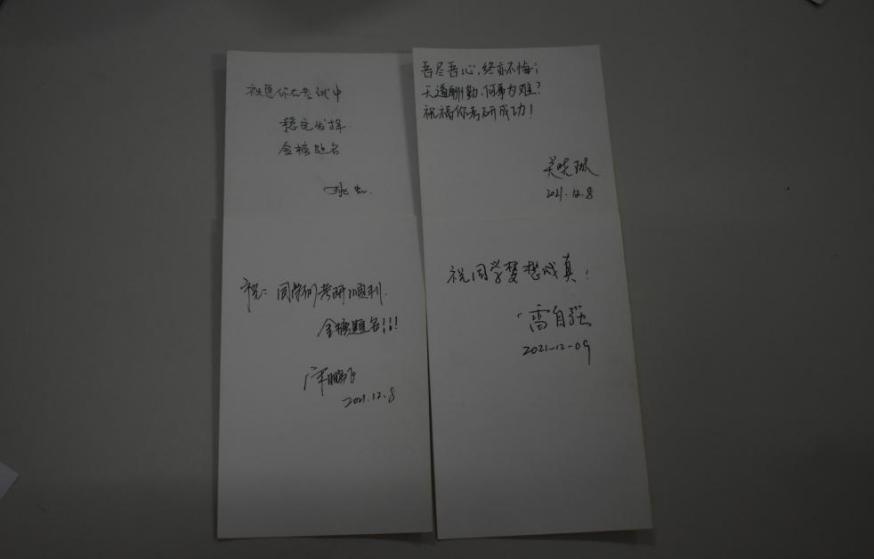 祝愿你在考试中
稳定发挥
金榜题名
吾尽吾心,终亦不悔;
天道酬勤,何事为难?
祝福你考研成功!
2021.12.8
祝:同学们考研顺利.
金榜题名!!!
2021.12.8
祝同学梦想成真!
雷自强
2021-12-09